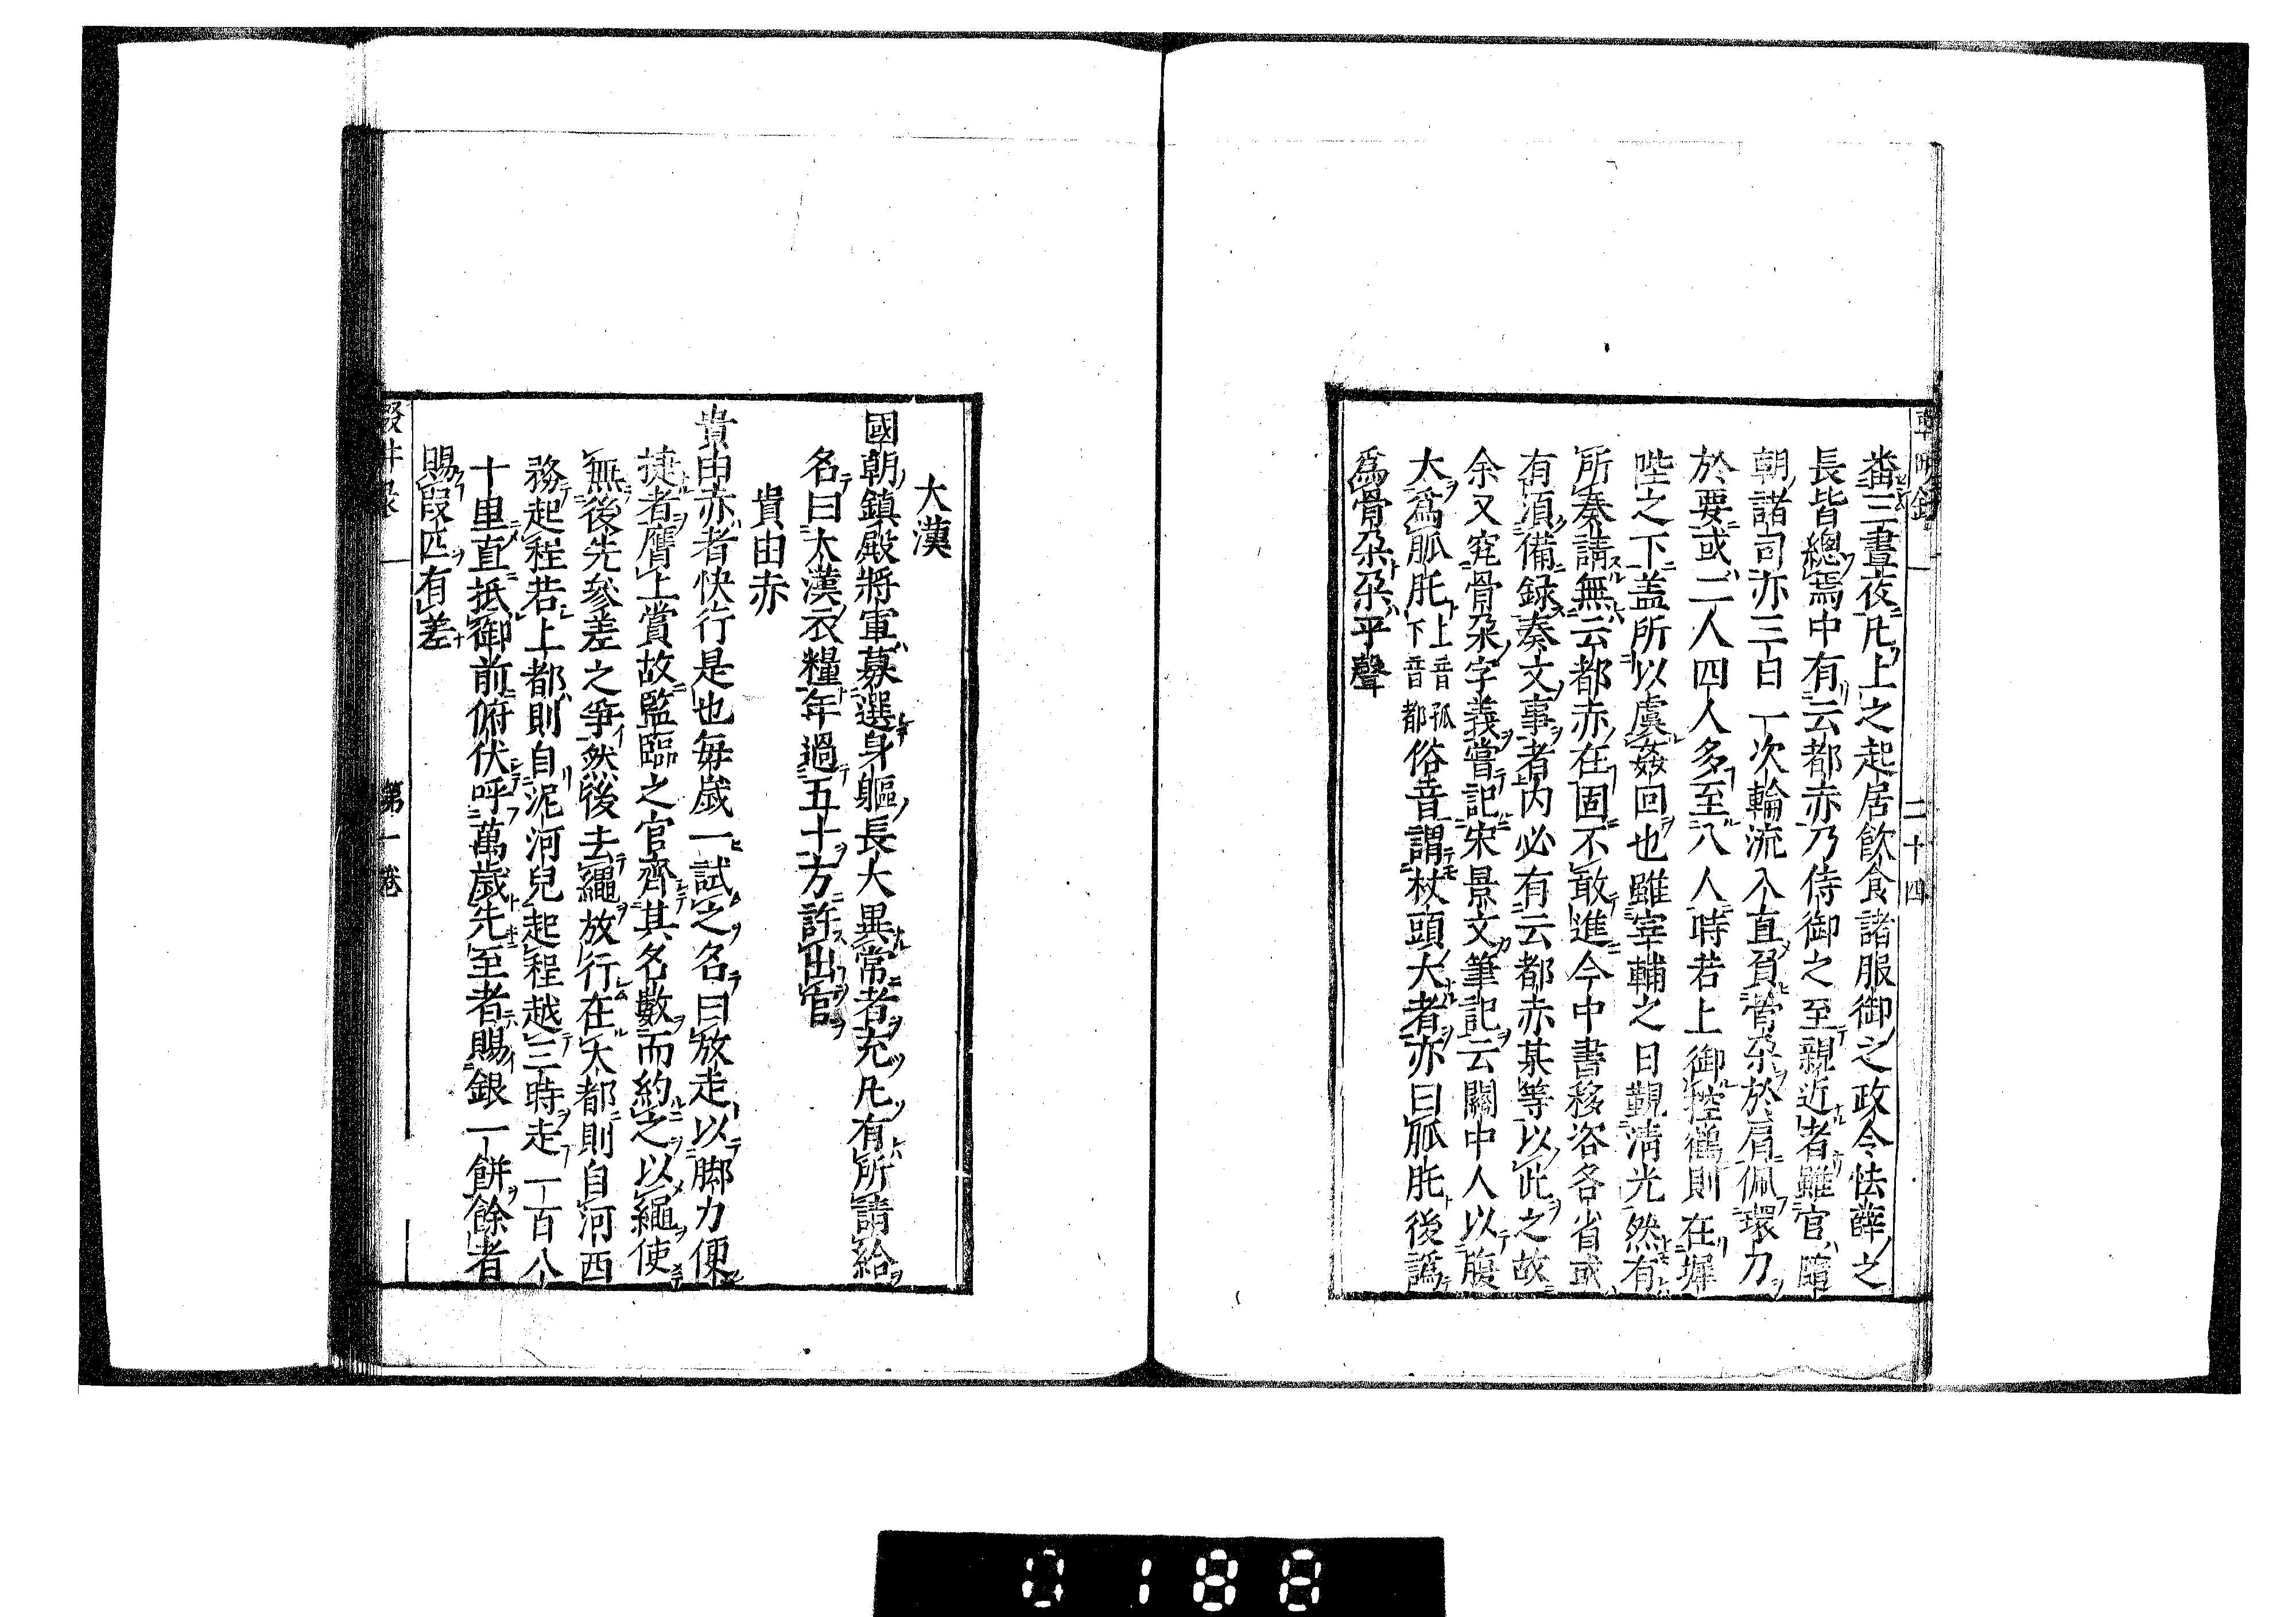 二十四
番三晝夜凡上之起居飮食諸服御之政令怯薛之
長皆總焉中有云都赤乃侍御之至親近者雖官隨
朝諸司亦三日一次輪流入直負骨朶於肩佩環刀
於要或二人四人多至八人時若上御控鶴則在墀
陛之下盖所以虞姦回也雖宰輔之日覲清光然有
所奏請無云都赤在固不敢進今中書移咨各省或
有須備録奏文事者内必有云都赤某等以此之故
余又究骨朶字義嘗記宋景文筆記云關中人以腹
大爲胍肫上音孤下音都俗音謂杖頭大者亦曰胍肫後譌
爲骨朶朶平聲
大漢
國朝鎮殿將軍募選身軀長大異常者充凡有所請給
名曰大漢衣糧年過五十方許出官
貴由赤
貴由赤者快行是也毎歳一試之名曰放走以脚力便
捷者膺上賞故監臨之官齊其名數而約之以繩使
無後先參差之爭然後去繩放行在大都則自河西
務起程若上都則自泥河兒起程越三時走一百八
十里直抵御前俯伏呼萬歳先至者賜銀一餅餘者
賜段匹有差
第一卷